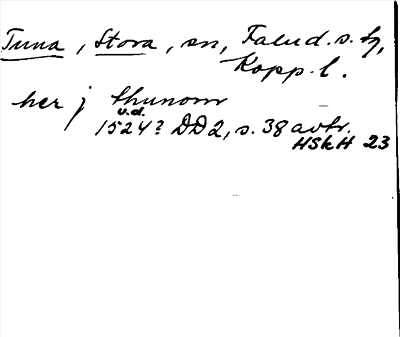 Tuna, Stora, sn, Falud. s. tg,
Kopp. l.
her j thunom
u.d.
1524? DD2, s. 38 avtr.
HSkH 23